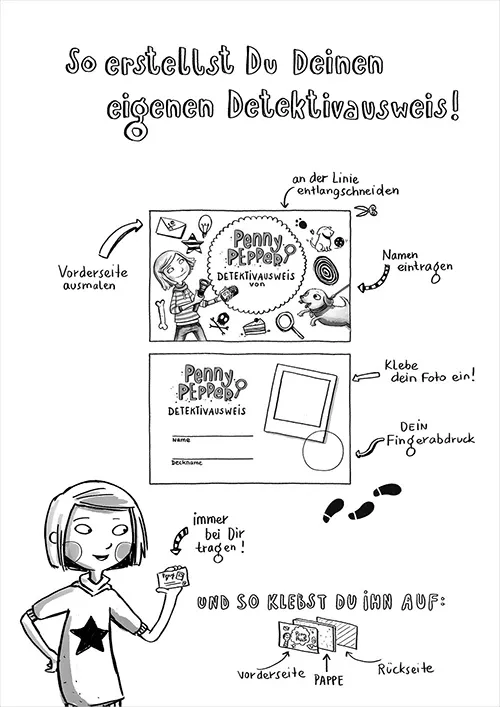 So erstellst Du Deinen
eigenen Detektivausweis!
an der Linie
entlangschneiden
Vorderseite
ausmalen
Penny
PEPPER
DETEKTIVAUSWEIS
von
Namen
eintragen
Penny
PEPPER
DETEKTIVAUSWEIS
Name
Deckname
Klebe
dein Foto ein!
DEIN
Fingerabdruck
immer
bei Dir
tragen!
UND SO KLEBST DU IHN AUF:
Vorderseite
PAPPE
Rückseite